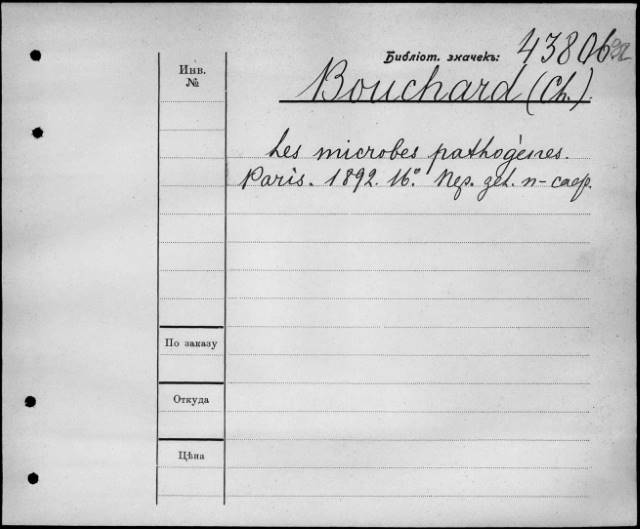 Библіот. значекъ: 43806
Инв.
№
Bouchard (Ch.)
Les microbes pathogènes.
Paris. 1892. 16°.
По заказу
Откуда
Цѣна